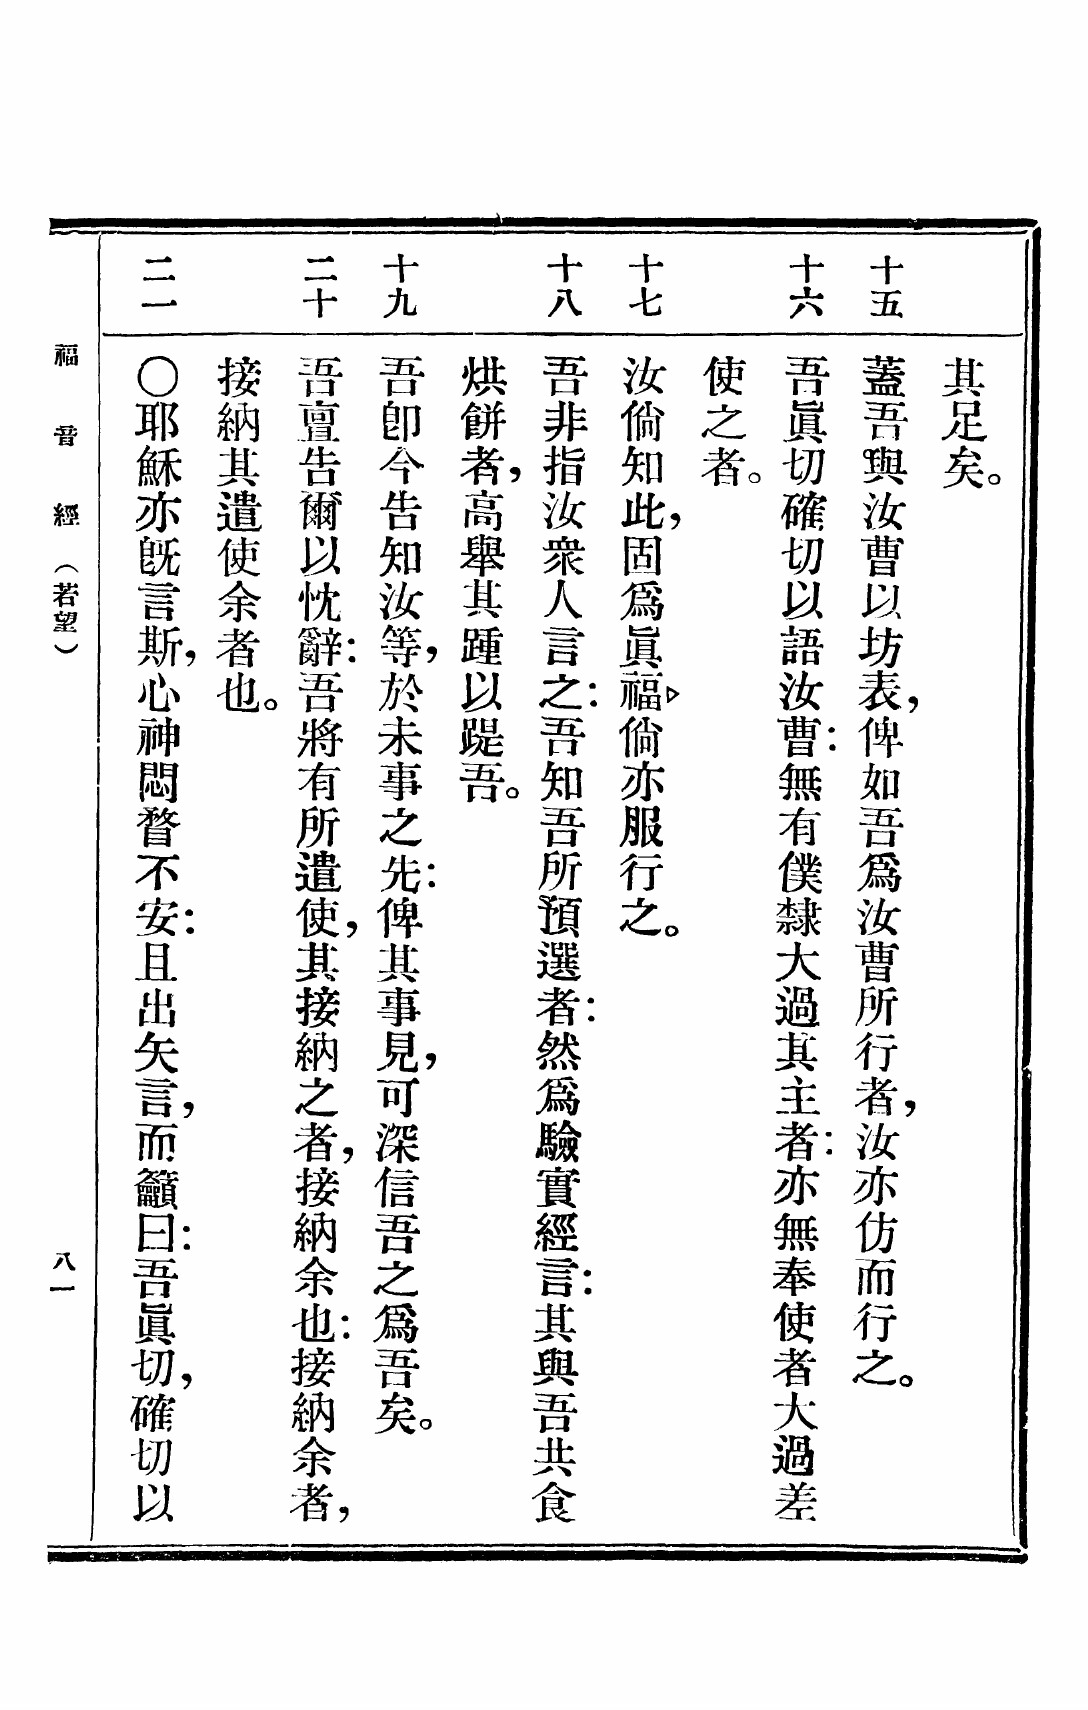 其足矣。
十五
蓋吾與汝曹以坊表，俾如吾爲汝曹所行者，汝亦仿而行之。
十六
吾眞切確切以語汝曹：無有僕隸大過其主者：亦無奉使者大過差
使之者。
十七
汝倘知此，固爲眞福，倘亦服行之。
十八
吾非指汝衆人言之：吾知吾所預選者：然爲驗實經言：其與吾共食
烘餅者，高舉其踵以踶吾。
十九
吾卽今吿知汝等，於未事之先：俾其事見，可深信吾之爲吾矣。
二十
吾亶吿爾以忱辭：吾將有所遣使，其接納之者，接納余也：接納余者，
接納其遣使余者也。
二一
〇耶穌亦旣言斯，心神悶瞀不安：且出矢言，而籲曰：吾眞切，確切以
福音經（若望）
八一